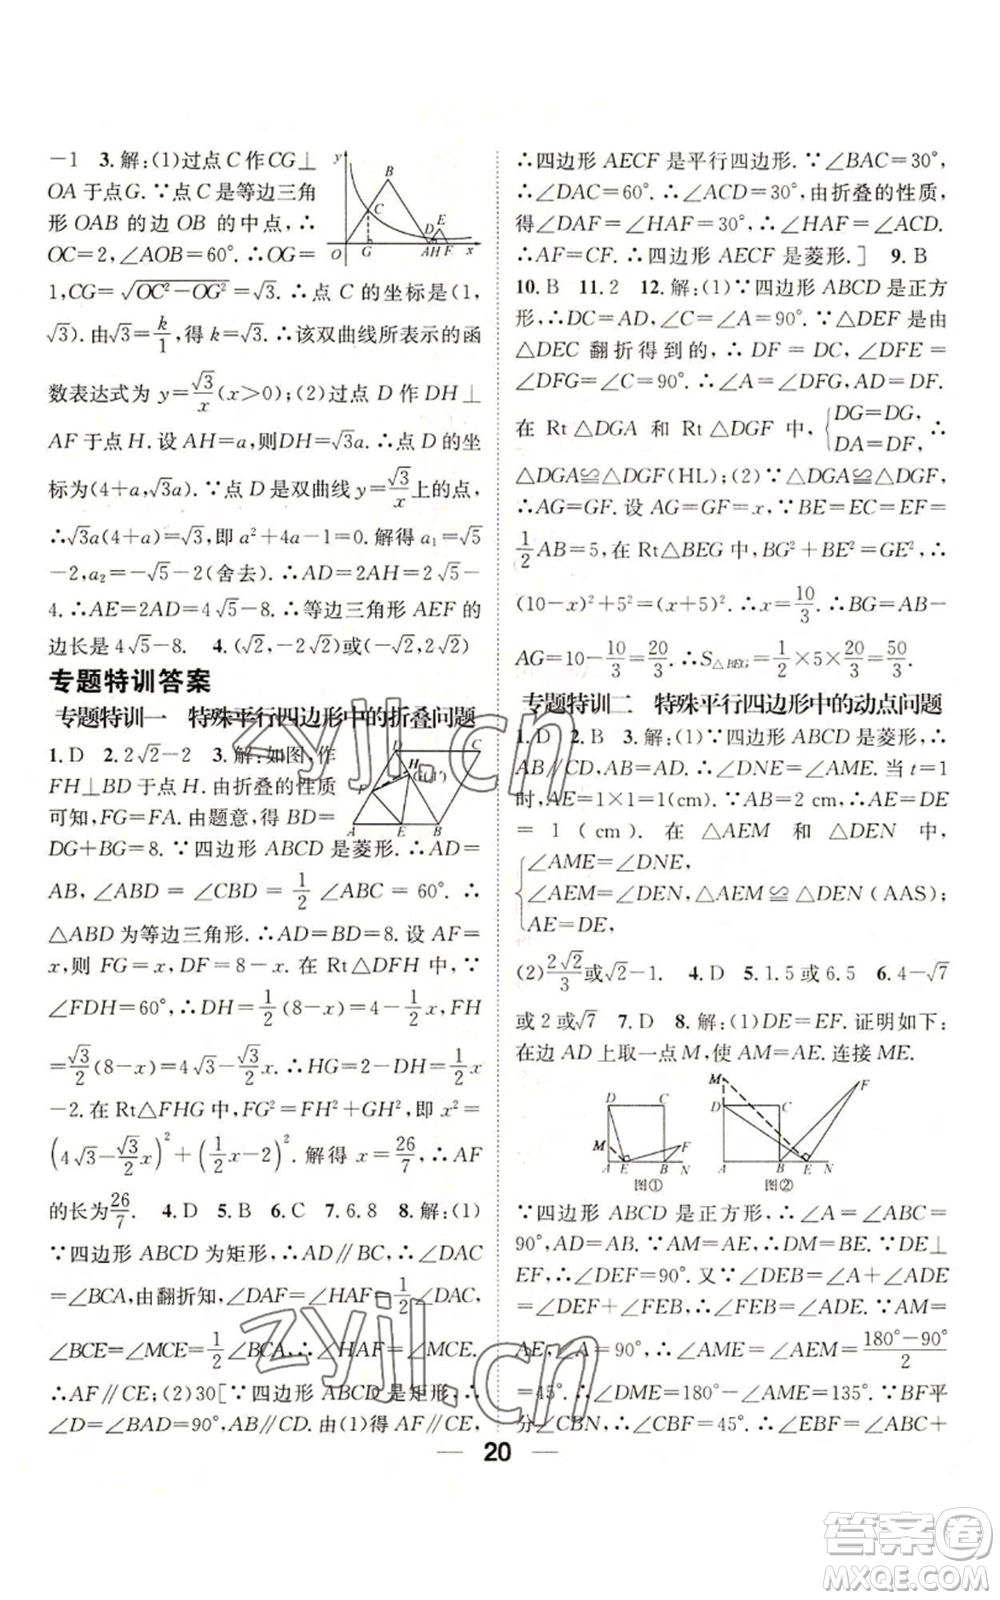 -1 3.解:(1)过点C作CG⊥
OA于点G.∵点C是等边三角
形OAB的边OB的中点,∴
OC=2,∠AOB=60°.∴OG=
1,CG=√(OC²-OG²)=√3.∴点C的坐标是(1,
√3).由√3=k/1,得k=√3.∴该双曲线所表示的函
数表达式为y=√3/x(x>0);(2)过点D作DH⊥
AF于点H.设AH=a,则DH=√3a.∴点D的坐
标为(4+a,√3a).∵点D是双曲线y=√3/x上的点,
∴√3a(4+a)=√3,即a²+4a-1=0.解得a₁=√5
-2,a₂=-√5-2(舍去).∴AD=2AH=2√5-
4.∴AE=2AD=4√5-8.∴等边三角形AEF的
边长是4√5-8. 4.(√2,-2√2)或(-√2,2√2)
y
B
C
D
E
O
G
A
H
F
x
专题特训答案
专题特训一 特殊平行四边形中的折叠问题
1.D 2.2√2-2 3.解:如图,作
FH⊥BD于点H.由折叠的性质
可知,FG=FA.由题意,得BD=
DG+BG=8.∵四边形ABCD是菱形.∴AD=
AB,∠ABD=∠CBD=1/2∠ABC=60°.∴
△ABD为等边三角形.∴AD=BD=8.设AF=
x,则FG=x,DF=8-x.在Rt△DFH中,∵
∠FDH=60°,∴DH=1/2(8-x)=4-1/2x,FH
=√3/2(8-x)=4√3-√3/2x.∴HG=2-DH=1/2x
-2.在Rt△FHG中,FG²=FH²+GH²,即x²=
(4√3-√3/2x)²+(1/2x-2)².解得x=26/7,∴AF
的长为26/7. 4.D 5.B 6.C 7.6.8 8.解:(1)
∵四边形ABCD为矩形,∴AD∥BC,∴∠DAC
=∠BCA,由翻折知,∠DAF=∠HAF=1/2∠DAC,
∠BCE=∠MCE=1/2∠BCA,∴∠HAF=∠MCE.
∴AF∥CE;(2)30[∵四边形ABCD是矩形,∴
∠D=∠BAD=90°,AB∥CD.由(1)得AF∥CE,
C
H
A
E
B
∴四边形AECF是平行四边形.∵∠BAC=30°,
∴∠DAC=60°.∵∠BAC=30°,由折叠的性质,
得∠DAF=∠HAF=30°,∴∠HAF=∠ACD.
∴AF=CF.∴四边形AECF是菱形.] 9.B
10.B 11.2 12.解:(1)∵四边形ABCD是正方
形,∴DC=DA,∠A=∠C=90°.∵△DEF是由
△DEC翻折得到的,∴DF=DC,∠DFE=
∠DFG=∠C=90°.∴∠A=∠DFG,AD=DF.
在Rt△DGA和Rt△DGF中,{DG=DG, DA=DF,∴
△DGA≌△DGF(HL);(2)∵△DGA≌△DGF,
∴AG=GF.设AG=GF=x,∵BE=EC=EF=
1/2AB=5,在Rt△BEG中,BG²+BE²=GE²,∴
(10-x)²+5²=(x+5)².∴x=10/3.∴BG=AB-
AG=10-10/3=20/3.∴S△BEG=1/2×5×20/3=50/3.
专题特训二 特殊平行四边形中的动点问题
1.D 2.B 3.解:(1)∵四边形ABCD是菱形,∴
AB∥CD.∴∠DNE=∠AME.当t=1
时,AE=1×1=1(cm).∵AD=2cm,∴AE=DE
=1(cm).在△AEM和△DEN中,
{∠AME=∠DNE,
∠AEM=∠DEN,∴△AEM≌△DEN(AAS);
AE=DE,
(2)2√2/3或√2-1. 4.D 5.1.5或6.5 6.4-√7
或2或√7 7.D 8.解:(1)DE=EF.证明如下:
在边AD上取一点M,使AM=AE.连接ME.
D C M F A E B N
图①
M F D C A B E N
图②
∵四边形ABCD是正方形,∴∠A=∠ABC=
90°,AD=AB.∵AM=AE,∴DM=BE.∵DE⊥
EF,∴∠DEF=90°.又∵∠DEB=∠A+∠ADE
=∠DEF+∠FEB,∴∠ADE=∠FEB.∵AM=
AE,∠A=90°.∴∠AME=∠AEM=(180°-90°)/2
=45°.∴∠DME=180°-∠AME=135°.∵BF平
分∠CBN,∴∠CBF=45°.∴∠EBF=∠ABC+
20
zyjl.cn
zyjl.cn
答案圈
MXQE.COM